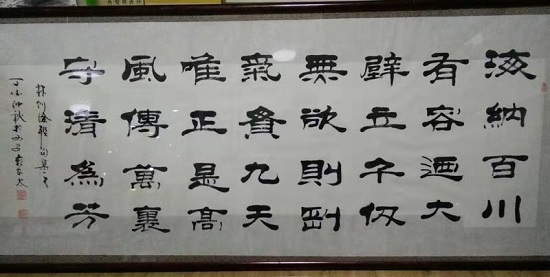 海納百川
有容迺大
壁立千仞
無欲則剛
氣貫九天
唯正是高
風傳萬裏
守清為芳
林則徐聯句
丁酉仲秋於